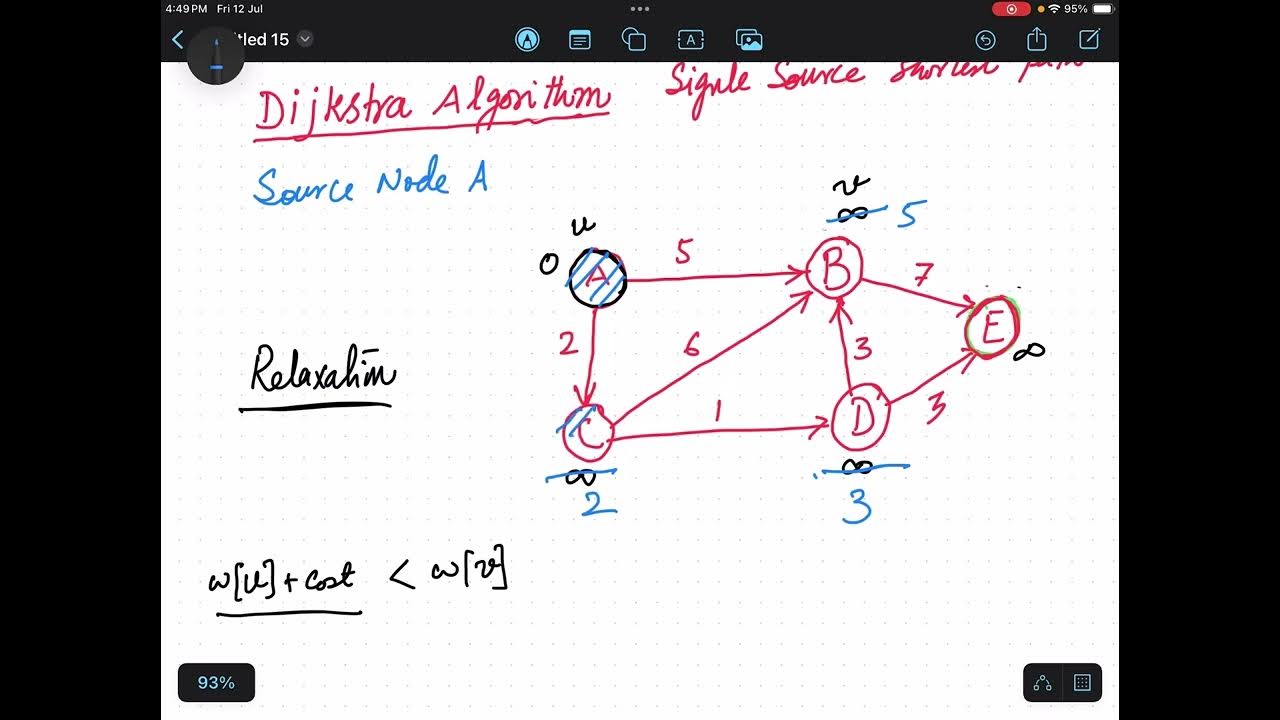 4:49 PM Fri 12 Jul
95%
tled 15
A
Dijkstra Algorithm
Signle Source Shortest path
Source Node A
v
∞ 5
u
0 A 5 B 7
E
∞
2 6 3 3
Relaxation
C 1 D
∞ ∞
2 3
w[u] + cost < w[v]
93%